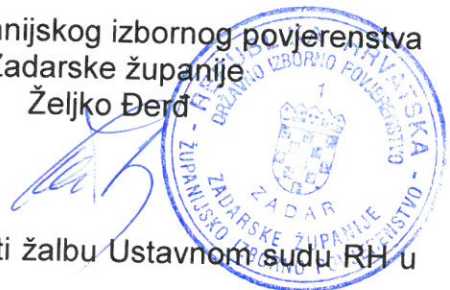 nijskog izbornog povjerenstva
Zadarske županije
Željko Đerđ
REPUBLIKA HRVATSKA
DRŽAVNO IZBORNO POVJERENSTVO
1
ZADAR
ŽUPANIJSKO IZBORNO POVJERENSTVO
ZADARSKE ŽUPANIJE
ti žalbu Ustavnom sudu RH u